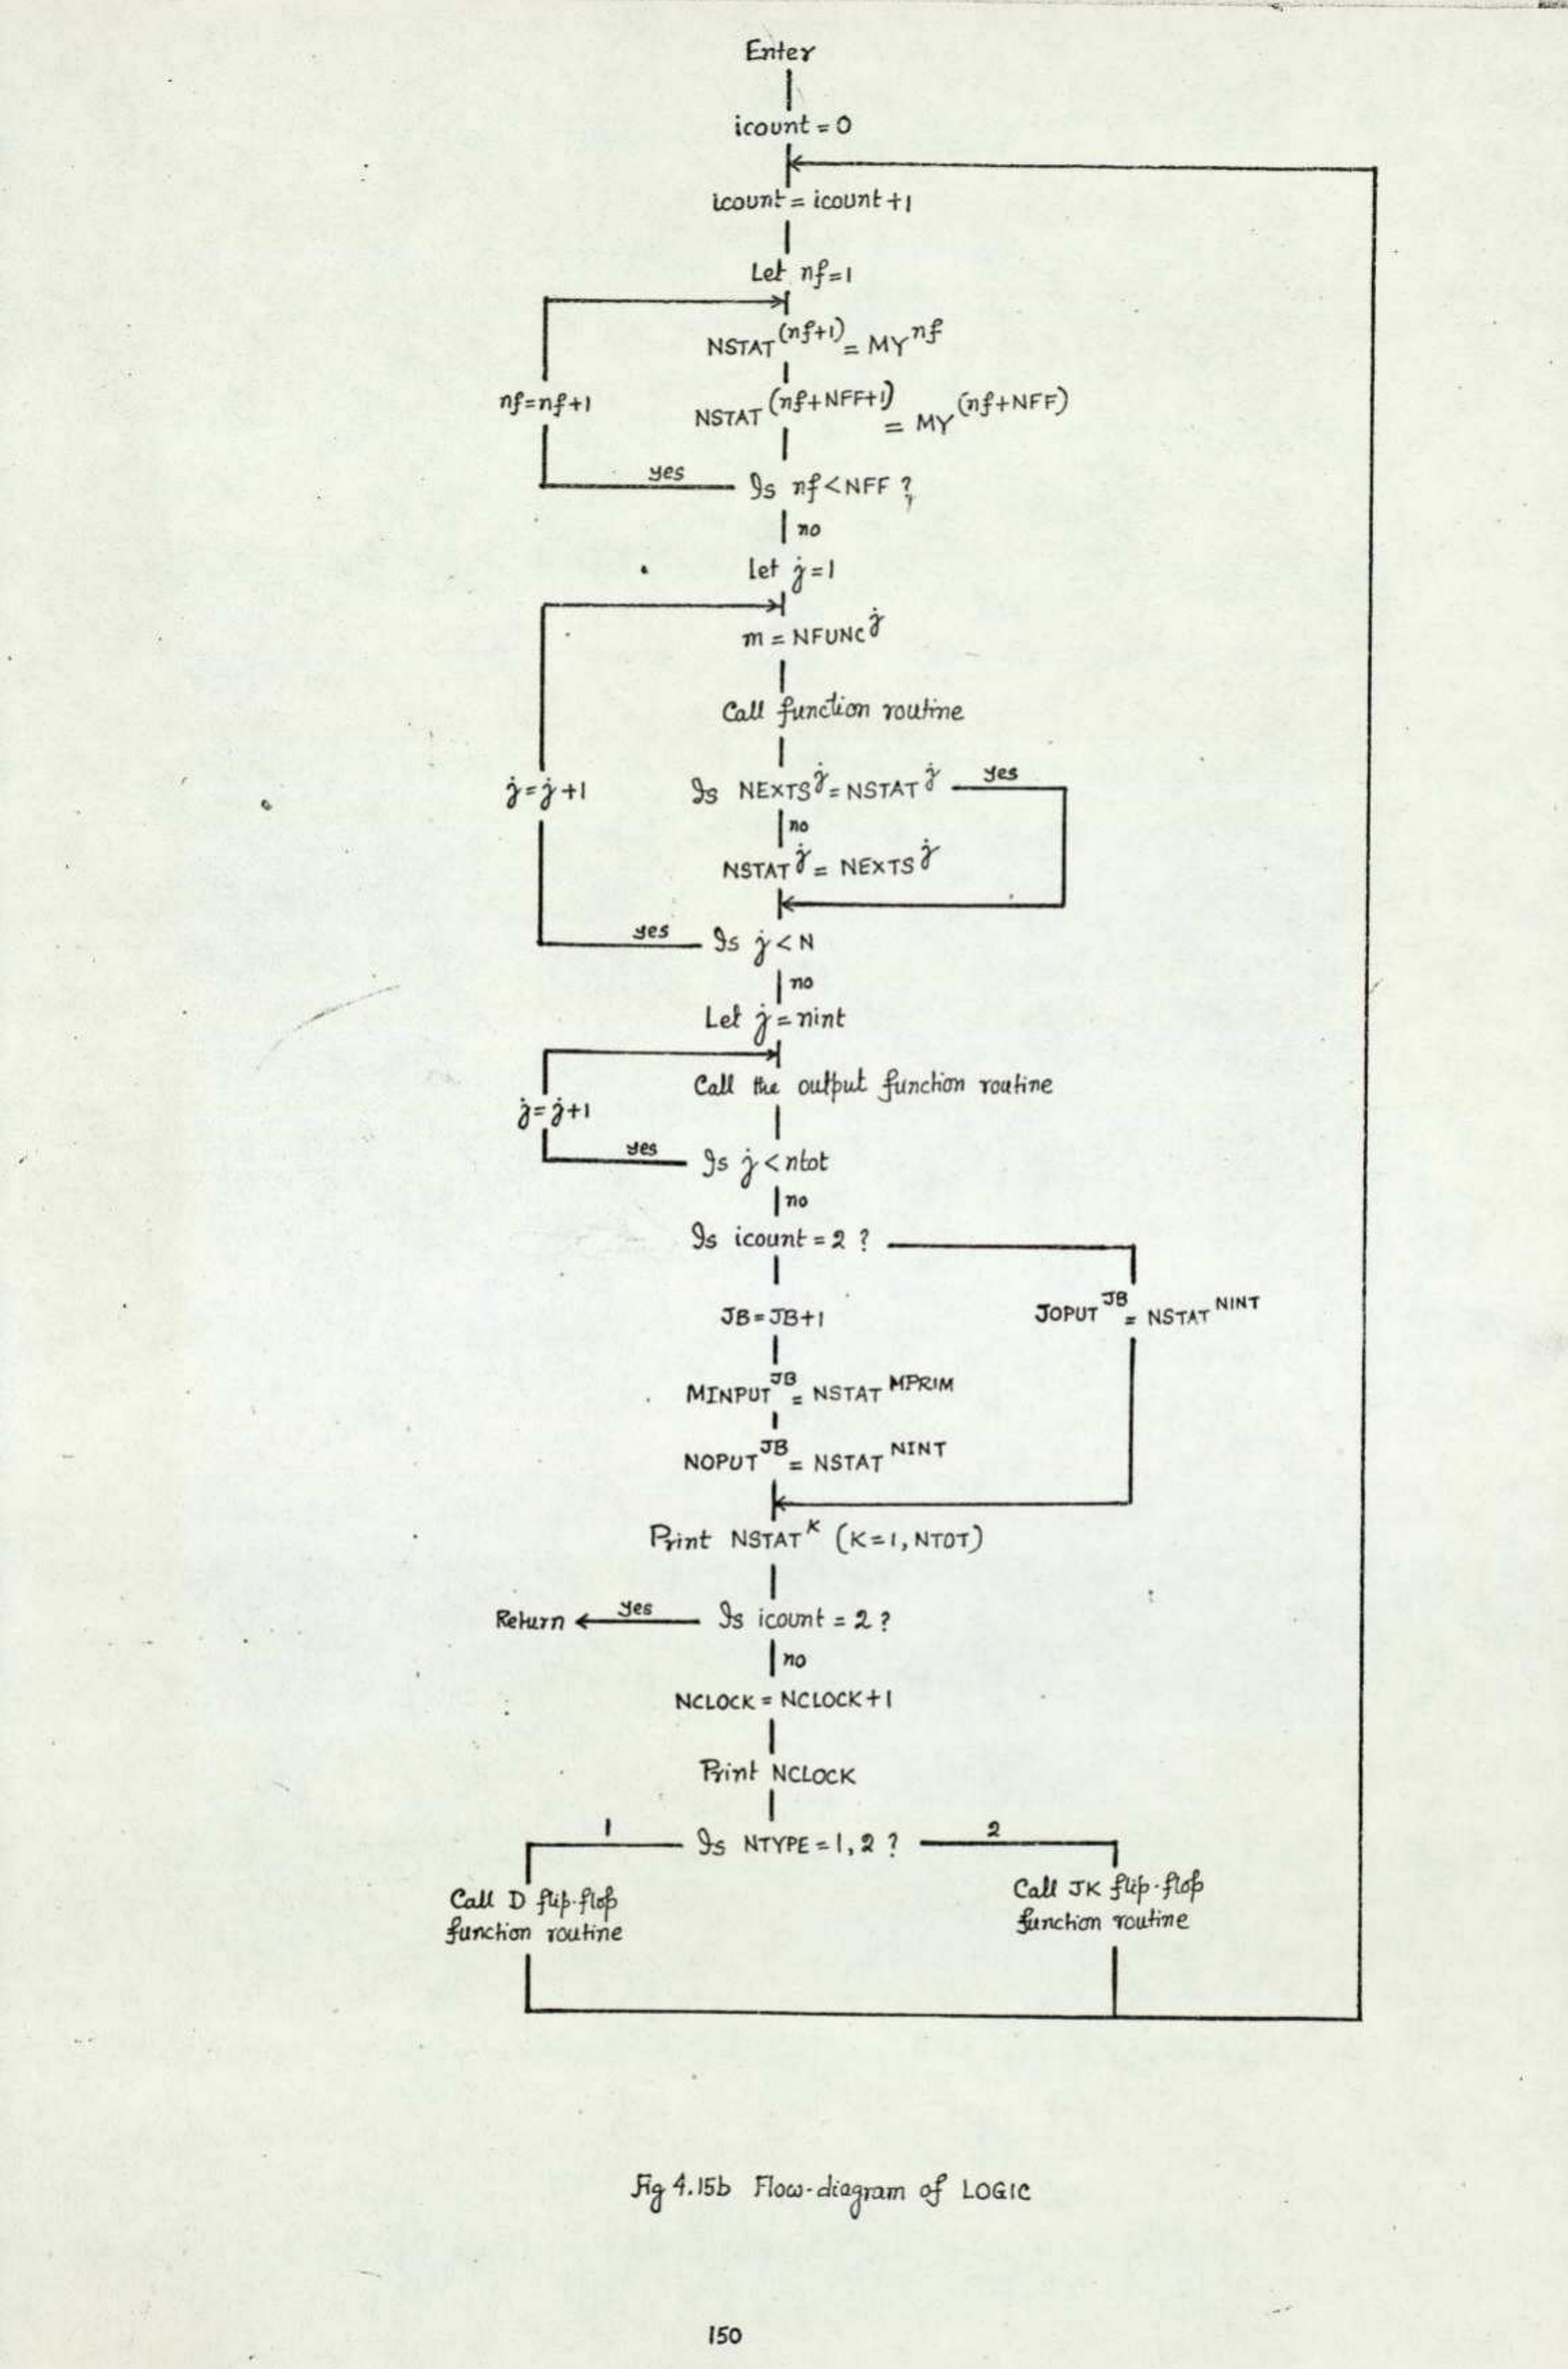 Enter
icount = 0
icount = icount +1
Let nf=1
NSTAT^(nf+1) = MY^nf
nf=nf+1
NSTAT^(nf+NFF+1) = MY^(nf+NFF)
yes
Is nf<NFF ?
no
Let j=1
m = NFUNC^j
Call function routine
j=j+1
Is NEXTS^j = NSTAT^j
yes
no
NSTAT^j = NEXTS^j
yes
Is j<N
no
Let j=nint
Call the output function routine
j=j+1
yes
Is j<ntot
no
Is icount = 2 ?
JB=JB+1
JOPUT^JB = NSTAT^NINT
MINPUT^JB = NSTAT^MPRIM
NOPUT^JB = NSTAT^NINT
Print NSTAT^K (K=1, NTOT)
Return
yes
Is icount = 2 ?
no
NCLOCK = NCLOCK+1
Print NCLOCK
1
Is NTYPE=1,2 ?
2
Call D flip-flop
function routine
Call JK flip-flop
function routine
Fig 4.15b Flow-diagram of LOGIC
150